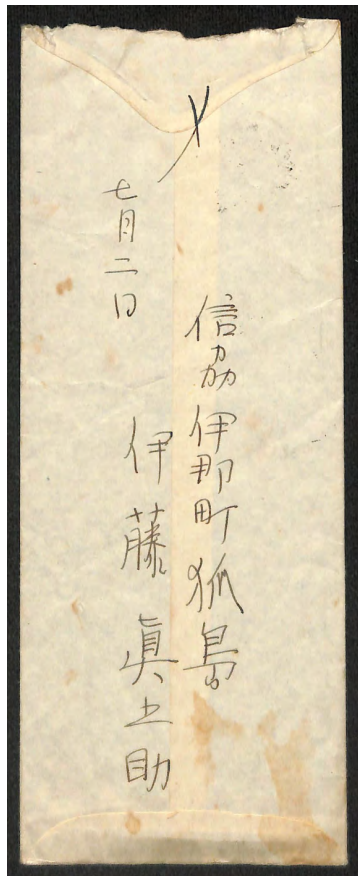 信刕伊那町狐島
伊藤眞之助
七月二日